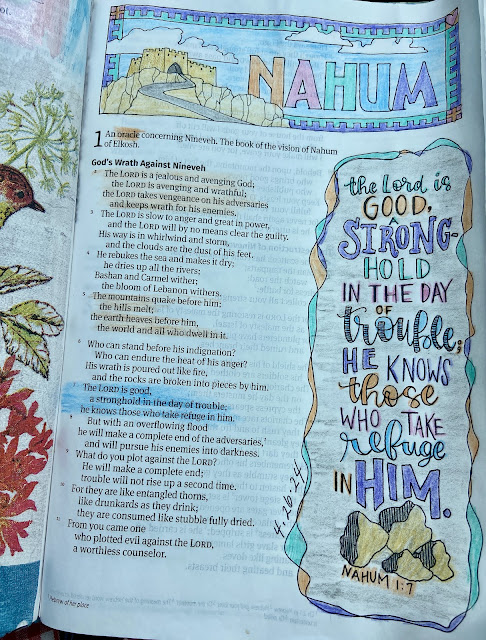 NAHUM
1 An oracle concerning Nineveh. The book of the vision of Nahum
of Elkosh.
God's Wrath Against Nineveh
2 The LORD is a jealous and avenging God;
the LORD is avenging and wrathful;
the LORD takes vengeance on his adversaries
and keeps wrath for his enemies.
3 The LORD is slow to anger and great in power,
and the LORD will by no means clear the guilty.
His way is in whirlwind and storm,
and the clouds are the dust of his feet.
4 He rebukes the sea and makes it dry;
he dries up all the rivers;
Bashan and Carmel wither;
the bloom of Lebanon withers.
5 The mountains quake before him;
the hills melt;
the earth heaves before him,
the world and all who dwell in it.
6 Who can stand before his indignation?
Who can endure the heat of his anger?
His wrath is poured out like fire,
and the rocks are broken into pieces by him.
7 The LORD is good,
a stronghold in the day of trouble;
he knows those who take refuge in him.
8 But with an overflowing flood
he will make a complete end of the adversaries,
and will pursue his enemies into darkness.
9 What do you plot against the LORD?
He will make a complete end;
trouble will not rise up a second time.
10 For they are like entangled thorns,
like drunkards as they drink;
they are consumed like stubble fully dried.
11 From you came one
who plotted evil against the LORD,
a worthless counselor.
Hebrew of her place
the Lord is
GOOD,
A
STRONG-
HOLD
IN THE DAY
OF
trouble;
HE KNOWS
those
WHO TAKE
refuge
IN HIM.
NAHUM 1:7
4.26.24